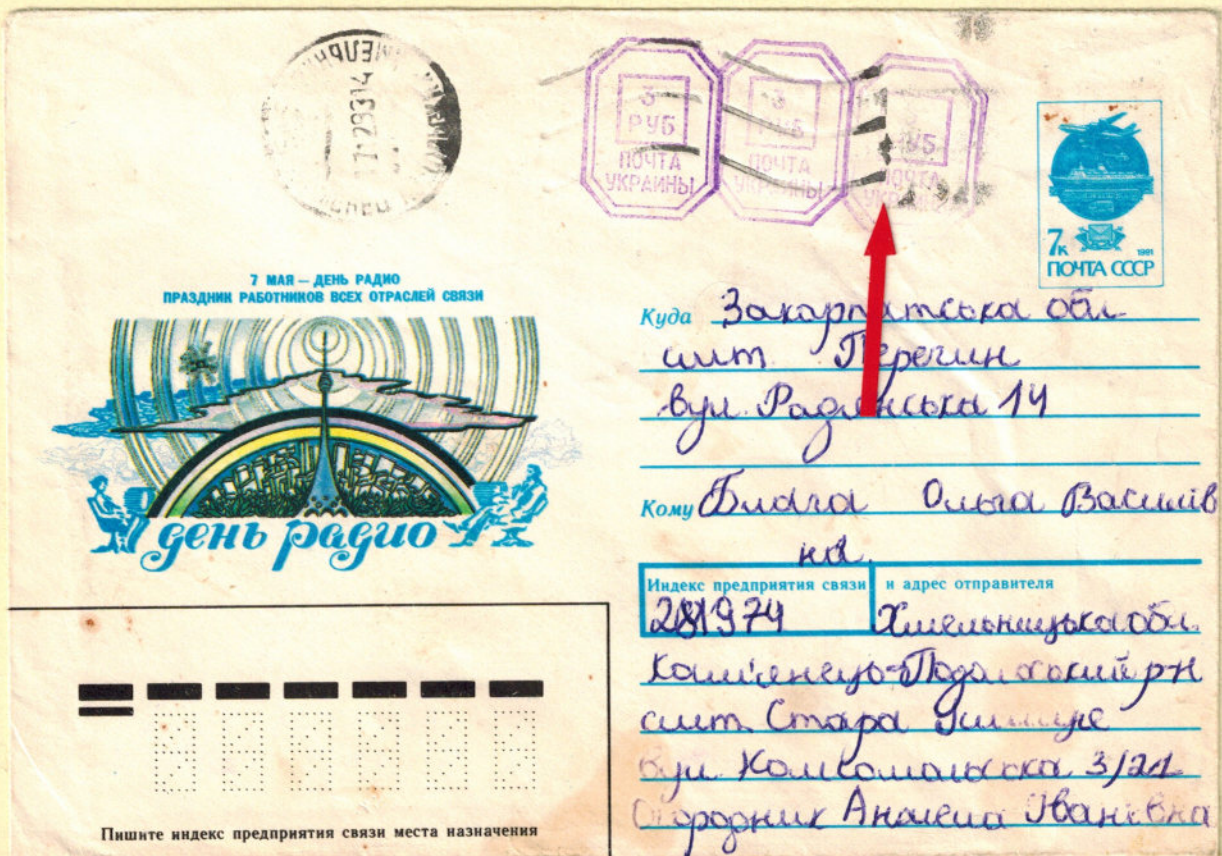 3
РУБ
ПОЧТА
УКРАИНЫ
3
РУБ
ПОЧТА
УКРАИНЫ
РУБ
ПОЧТА
7к
1991
ПОЧТА СССР
7 МАЯ — ДЕНЬ РАДИО
ПРАЗДНИК РАБОТНИКОВ ВСЕХ ОТРАСЛЕЙ СВЯЗИ
день радио
Куда Закарпатська обл
смт. Перечин
вул. Радянська 14
Кому Блага Ольга Василів
на.
Индекс предприятия связи и адрес отправителя
281974 Хмельницька обл.
Кам'янець-Подольський р-н
смт. Стара
вул. Комсомольська 3/21
Огородник Іванівна
Пишите индекс предприятия связи места назначения